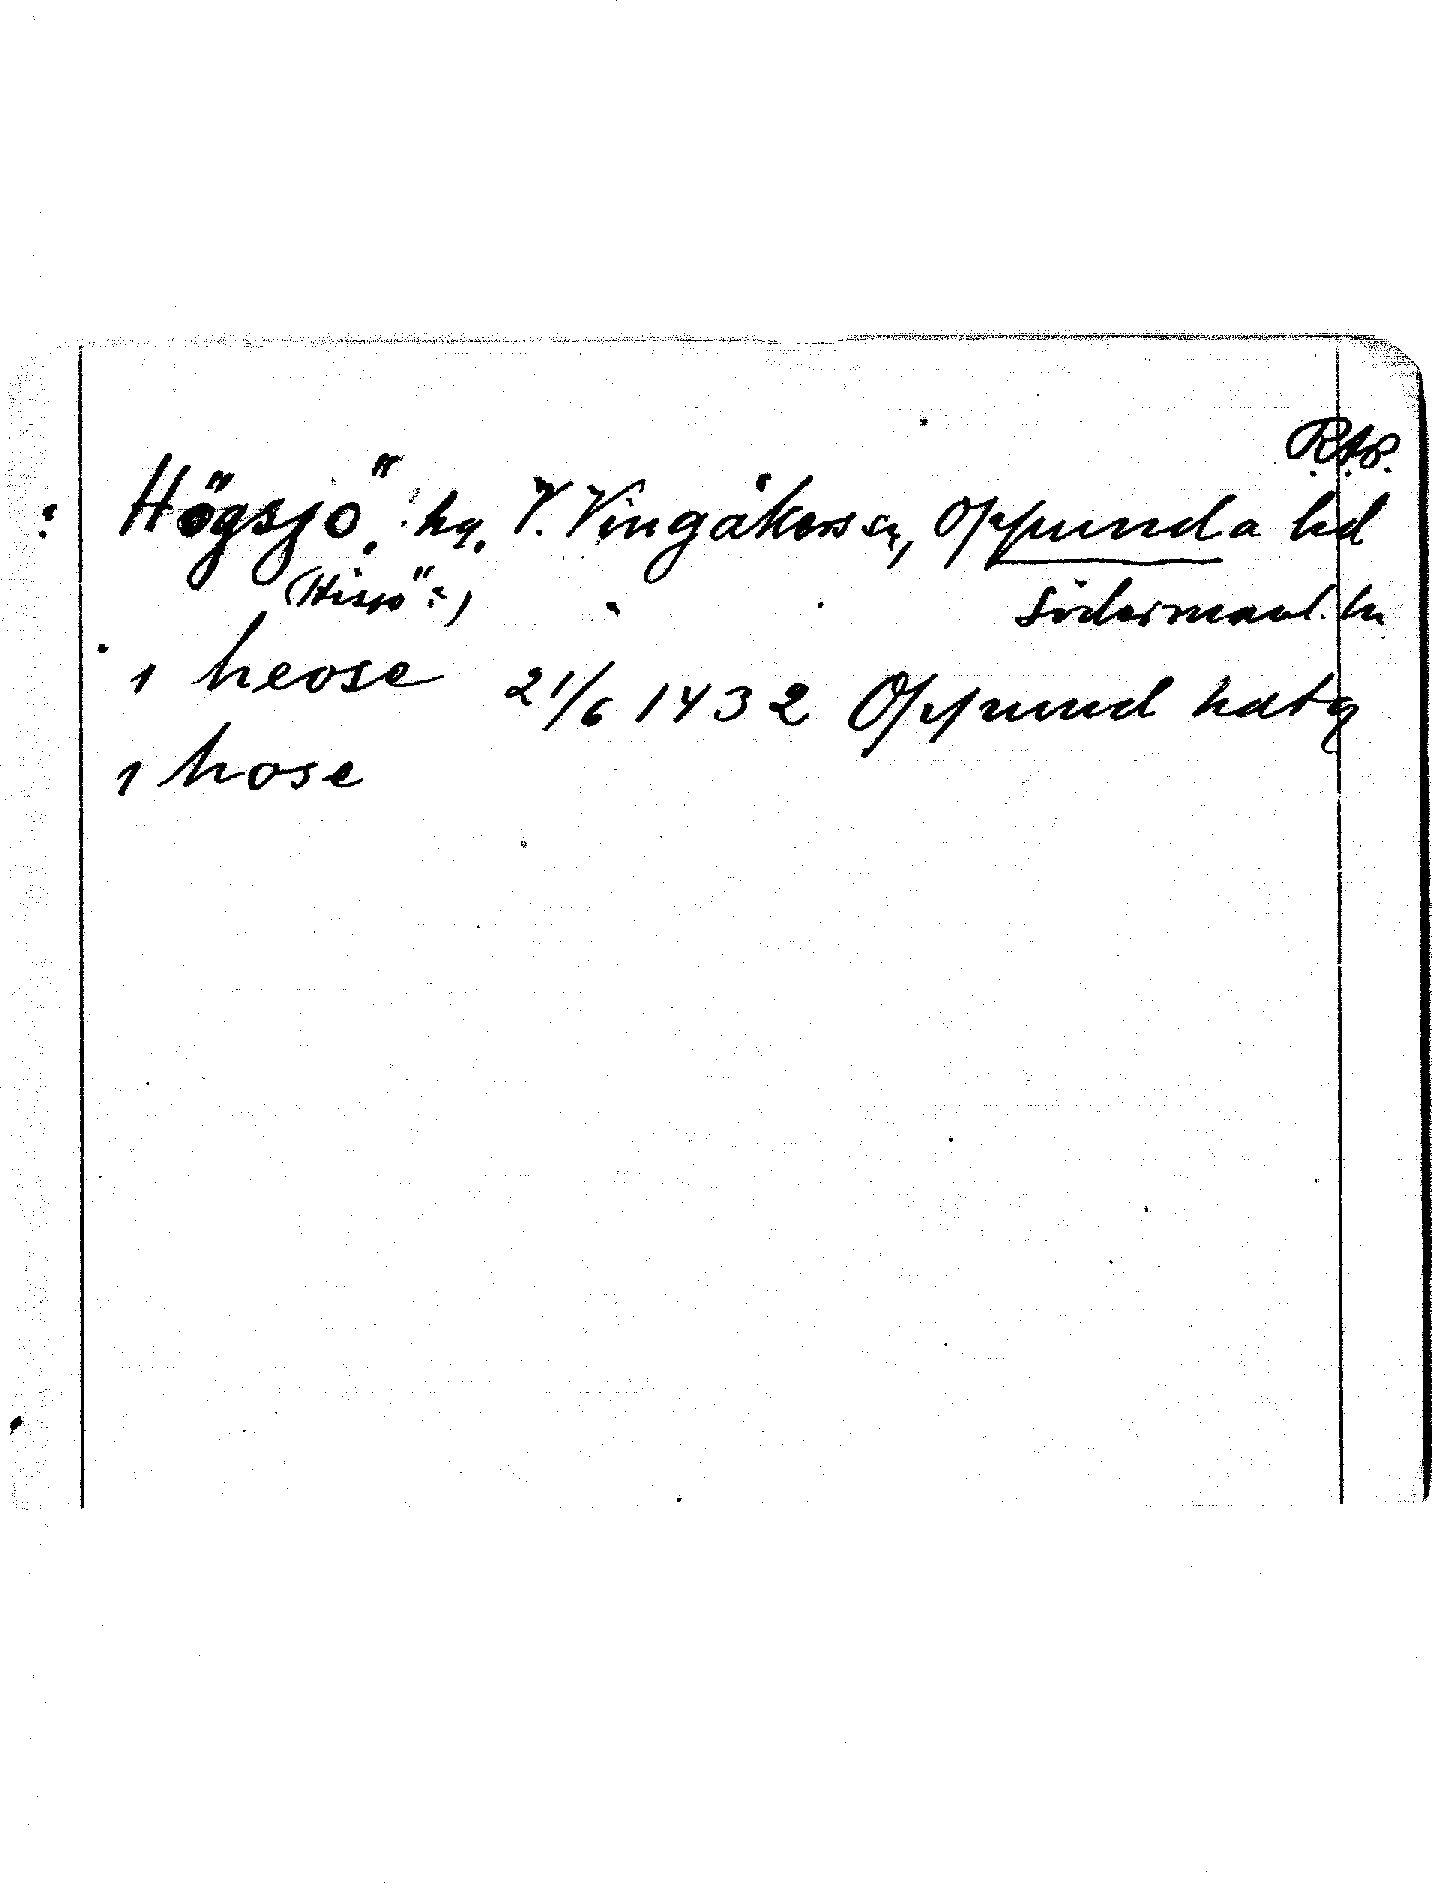 R.A.P.
Högsjö, hg. V. Vingåkers sn, Oppunda hd
(Hisjö:) Södermanl. ln
1 heose 21/6 1432 Oppund hdtg
1 hose